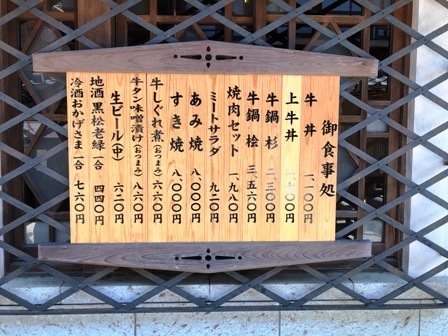 御食事処
牛丼 一、一〇〇円
上牛丼 一、七〇〇円
牛鍋 杉 二、三〇〇円
牛鍋 桧 三、五六〇円
焼肉セット 一、九八〇円
ミートサラダ 九二〇円
あみ焼 八、〇〇〇円
すき焼 八、〇〇〇円
牛しぐれ煮(おつまみ) 六六〇円
牛タン味噌漬け(おつまみ) 八六〇円
生ビール(中) 六二〇円
地酒 黒松老緑 一合 四四〇円
冷酒おかげさま 一合 七六〇円